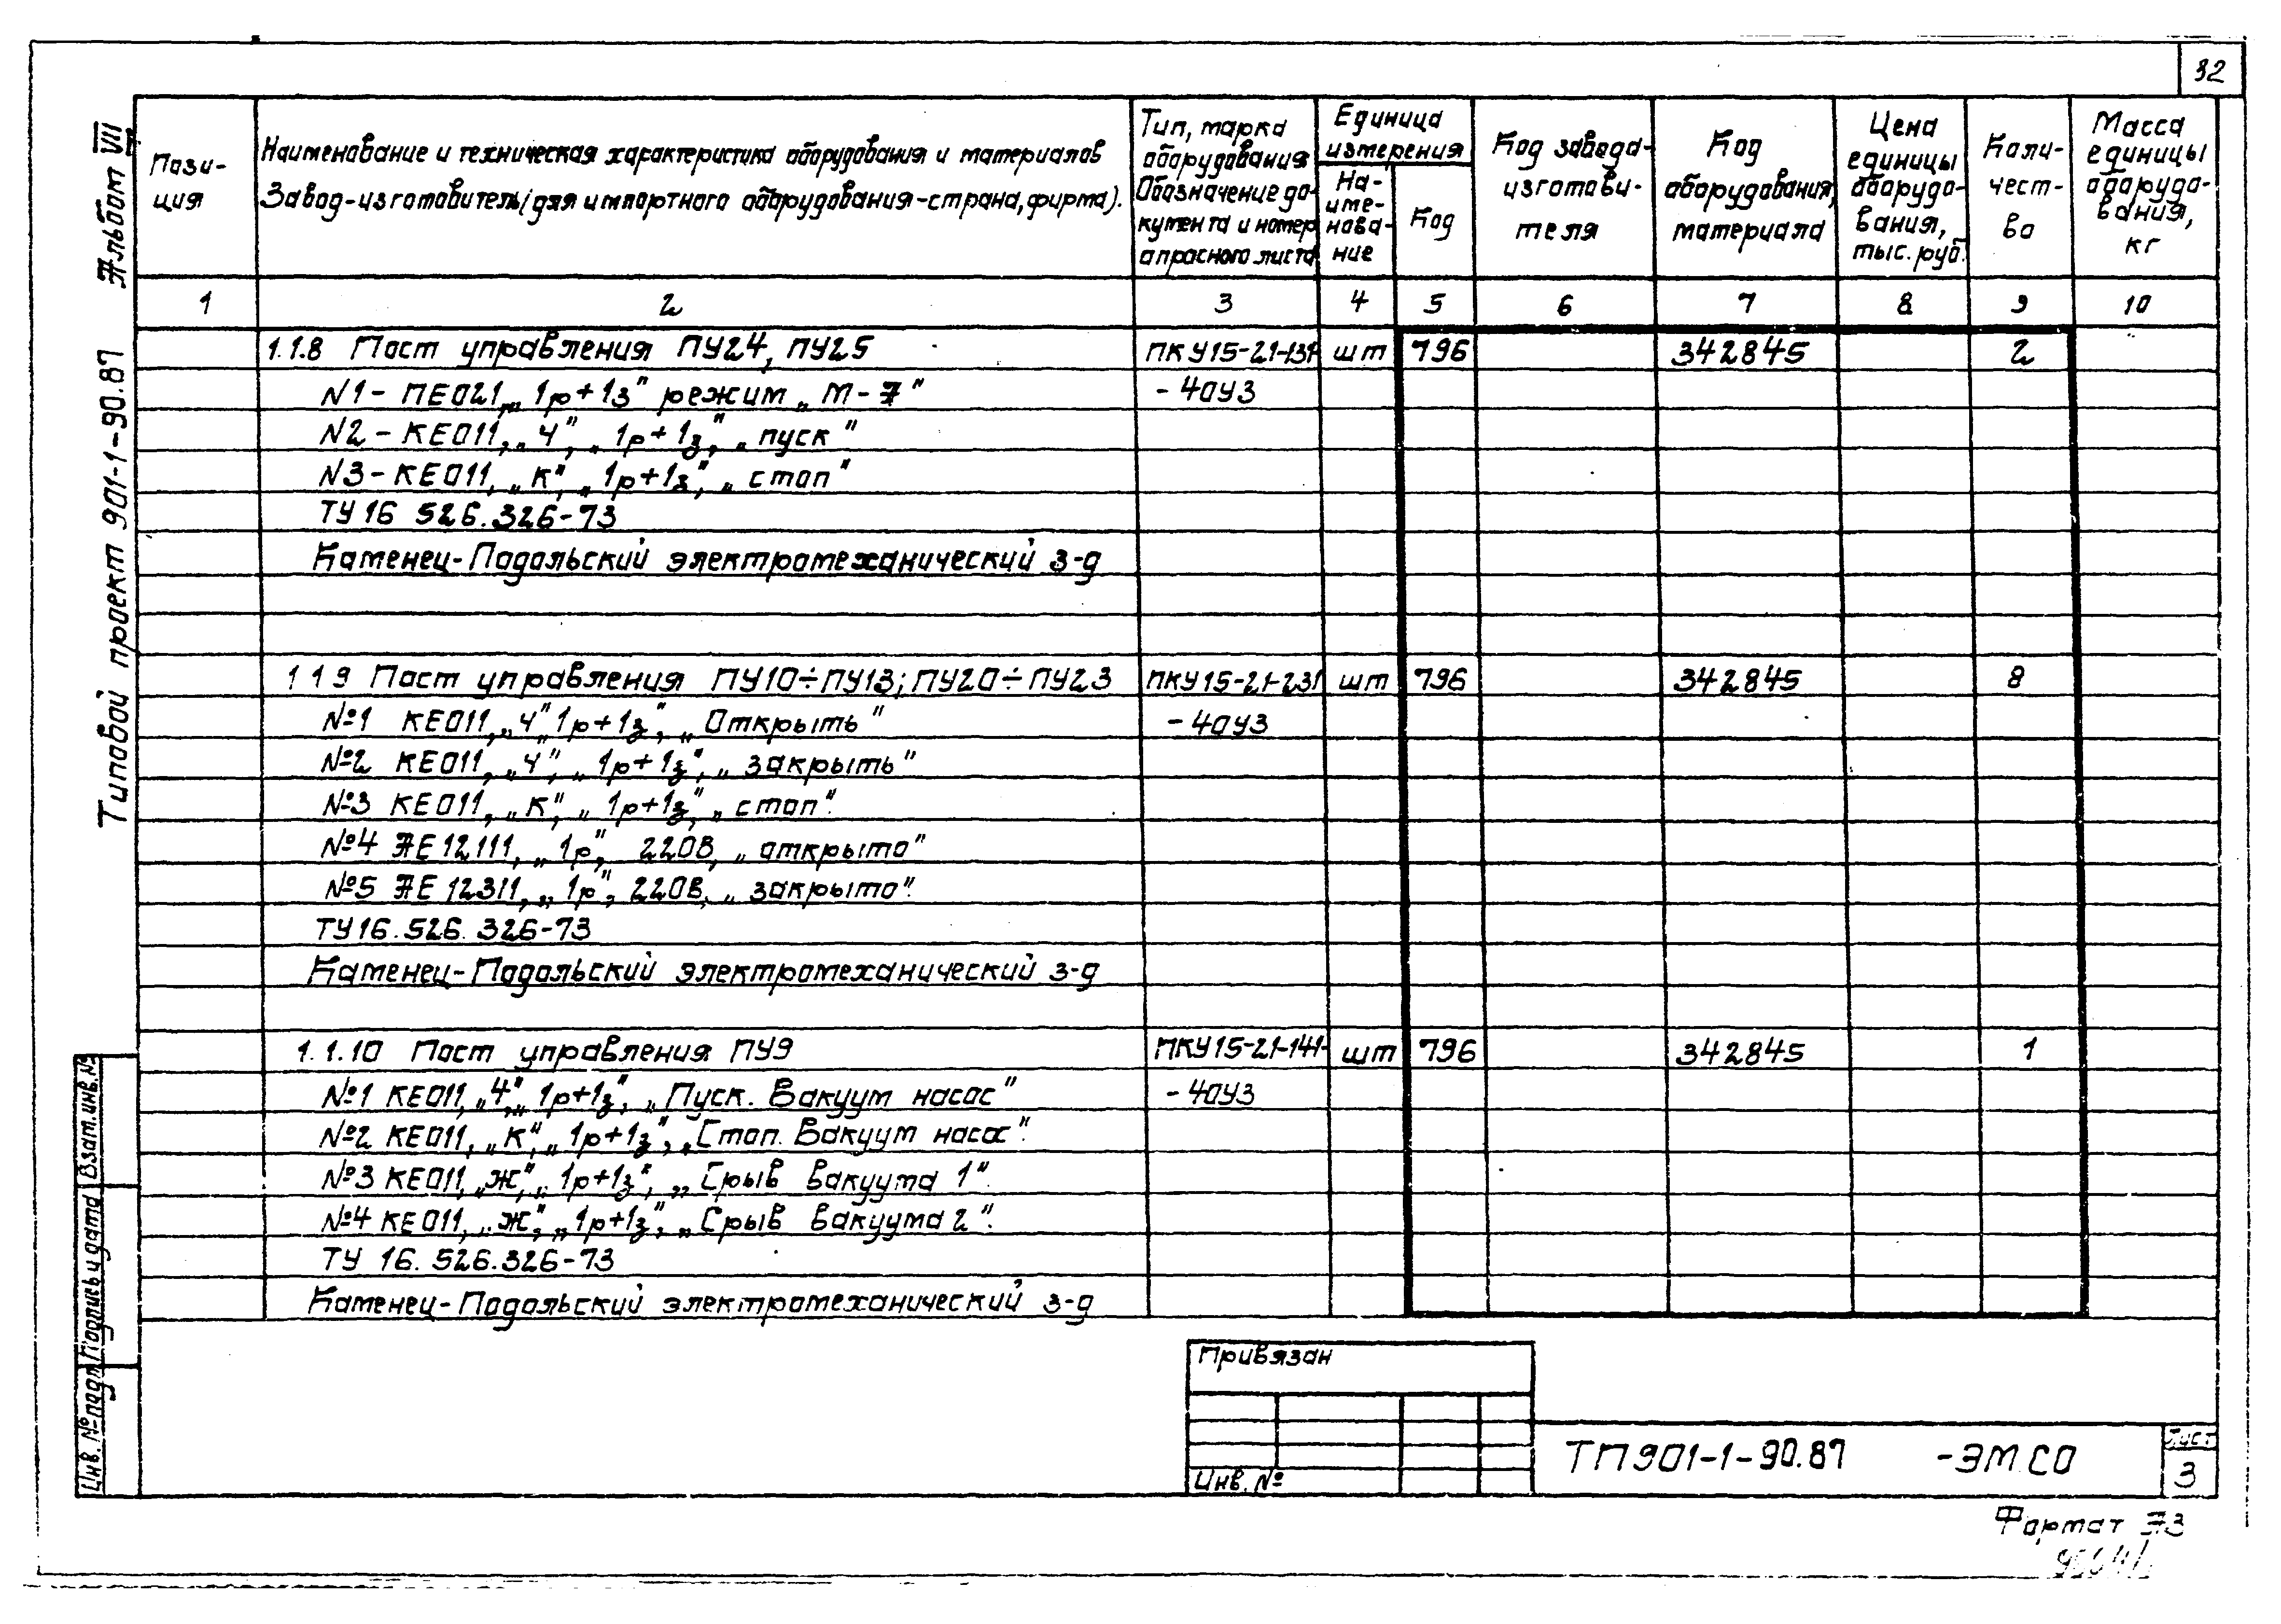 32
Типовой проект 901-1-90.87 Альбом VII
Пози-
ция
Наименование и техническая характеристика оборудования и материалов
Завод-изготовитель (для импортного оборудования-страна, фирма).
Тип, марка
оборудования
Обозначение до-
кумента и номер
опросного листа
Единица
измерения
На-
име-
нова-
ние
Код
Код завода-
изготови-
теля
Код
оборудования,
материала
Цена
единицы
оборудо-
вания,
тыс. руб.
Коли-
чест-
во
Масса
единицы
оборудо-
вания,
кг
1 2 3 4 5 6 7 8 9 10
1.1.8 Пост управления ПУ24, ПУ25 ПКУ15-21-131- шт 796 342845 2
N1- ПЕ021, „1р+1з" режим „М-А" -40У3
N2-КЕ011, „Ч", „1р+1з", „пуск"
N3-КЕ011, „К", „1р+1з", „стоп"
ТУ16 526.326-73
Каменец-Подольский электромеханический з-д
1 1 9 Пост управления ПУ10÷ПУ13; ПУ20÷ПУ23 ПКУ15-21-231 шт 796 342845 8
№1 КЕ011, „Ч" „1р+1з", „Открыть" -40У3
№2 КЕ011, „Ч", „1р+1з", „закрыть"
№3 КЕ011, „К", „1р+1з", „стоп".
№4 АЕ12111, „1р", 220В, „открыто"
№5 АЕ12311, „1р", 220В, „закрыто".
ТУ16.526.326-73
Каменец-Подольский электромеханический з-д
1.1.10 Пост управления ПУ9 ПКУ15-21-141- шт 796 342845 1
№1 КЕ011, „Ч", „1р+1з", „Пуск. Вакуум насос" -40У3
№2 КЕ011, „К", „1р+1з", „Стоп. Вакуум насос".
№3 КЕ011, „Ж", „1р+1з", „Срыв вакуума 1".
№4 КЕ011, „Ж", „1р+1з", „Срыв вакуума 2".
ТУ 16.526.326-73
Каменец-Подольский электромеханический з-д
Взам.инв.№
Подпись и дата
Инв. № подл
Привязан
Инв. №
ТП901-1-90.87 -ЭМ.СО
Лист
3
Формат А3